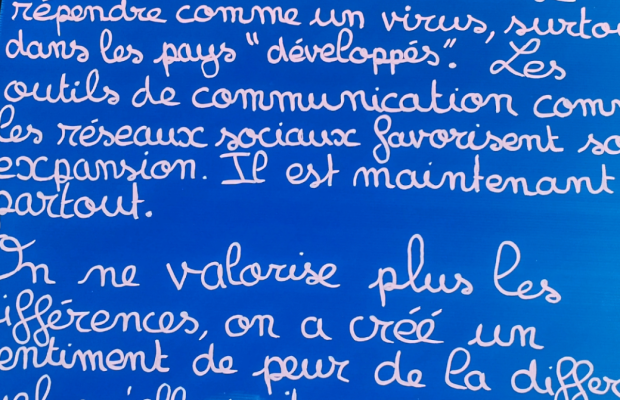 répendre comme un virus, surto
dans les pays "développés". Les
outils de communication com
les réseaux sociaux favorisent so
expansion. Il est maintenant
partout.
On ne valorise plus les
ifférences, on a créé un
entiment de peur de la différ